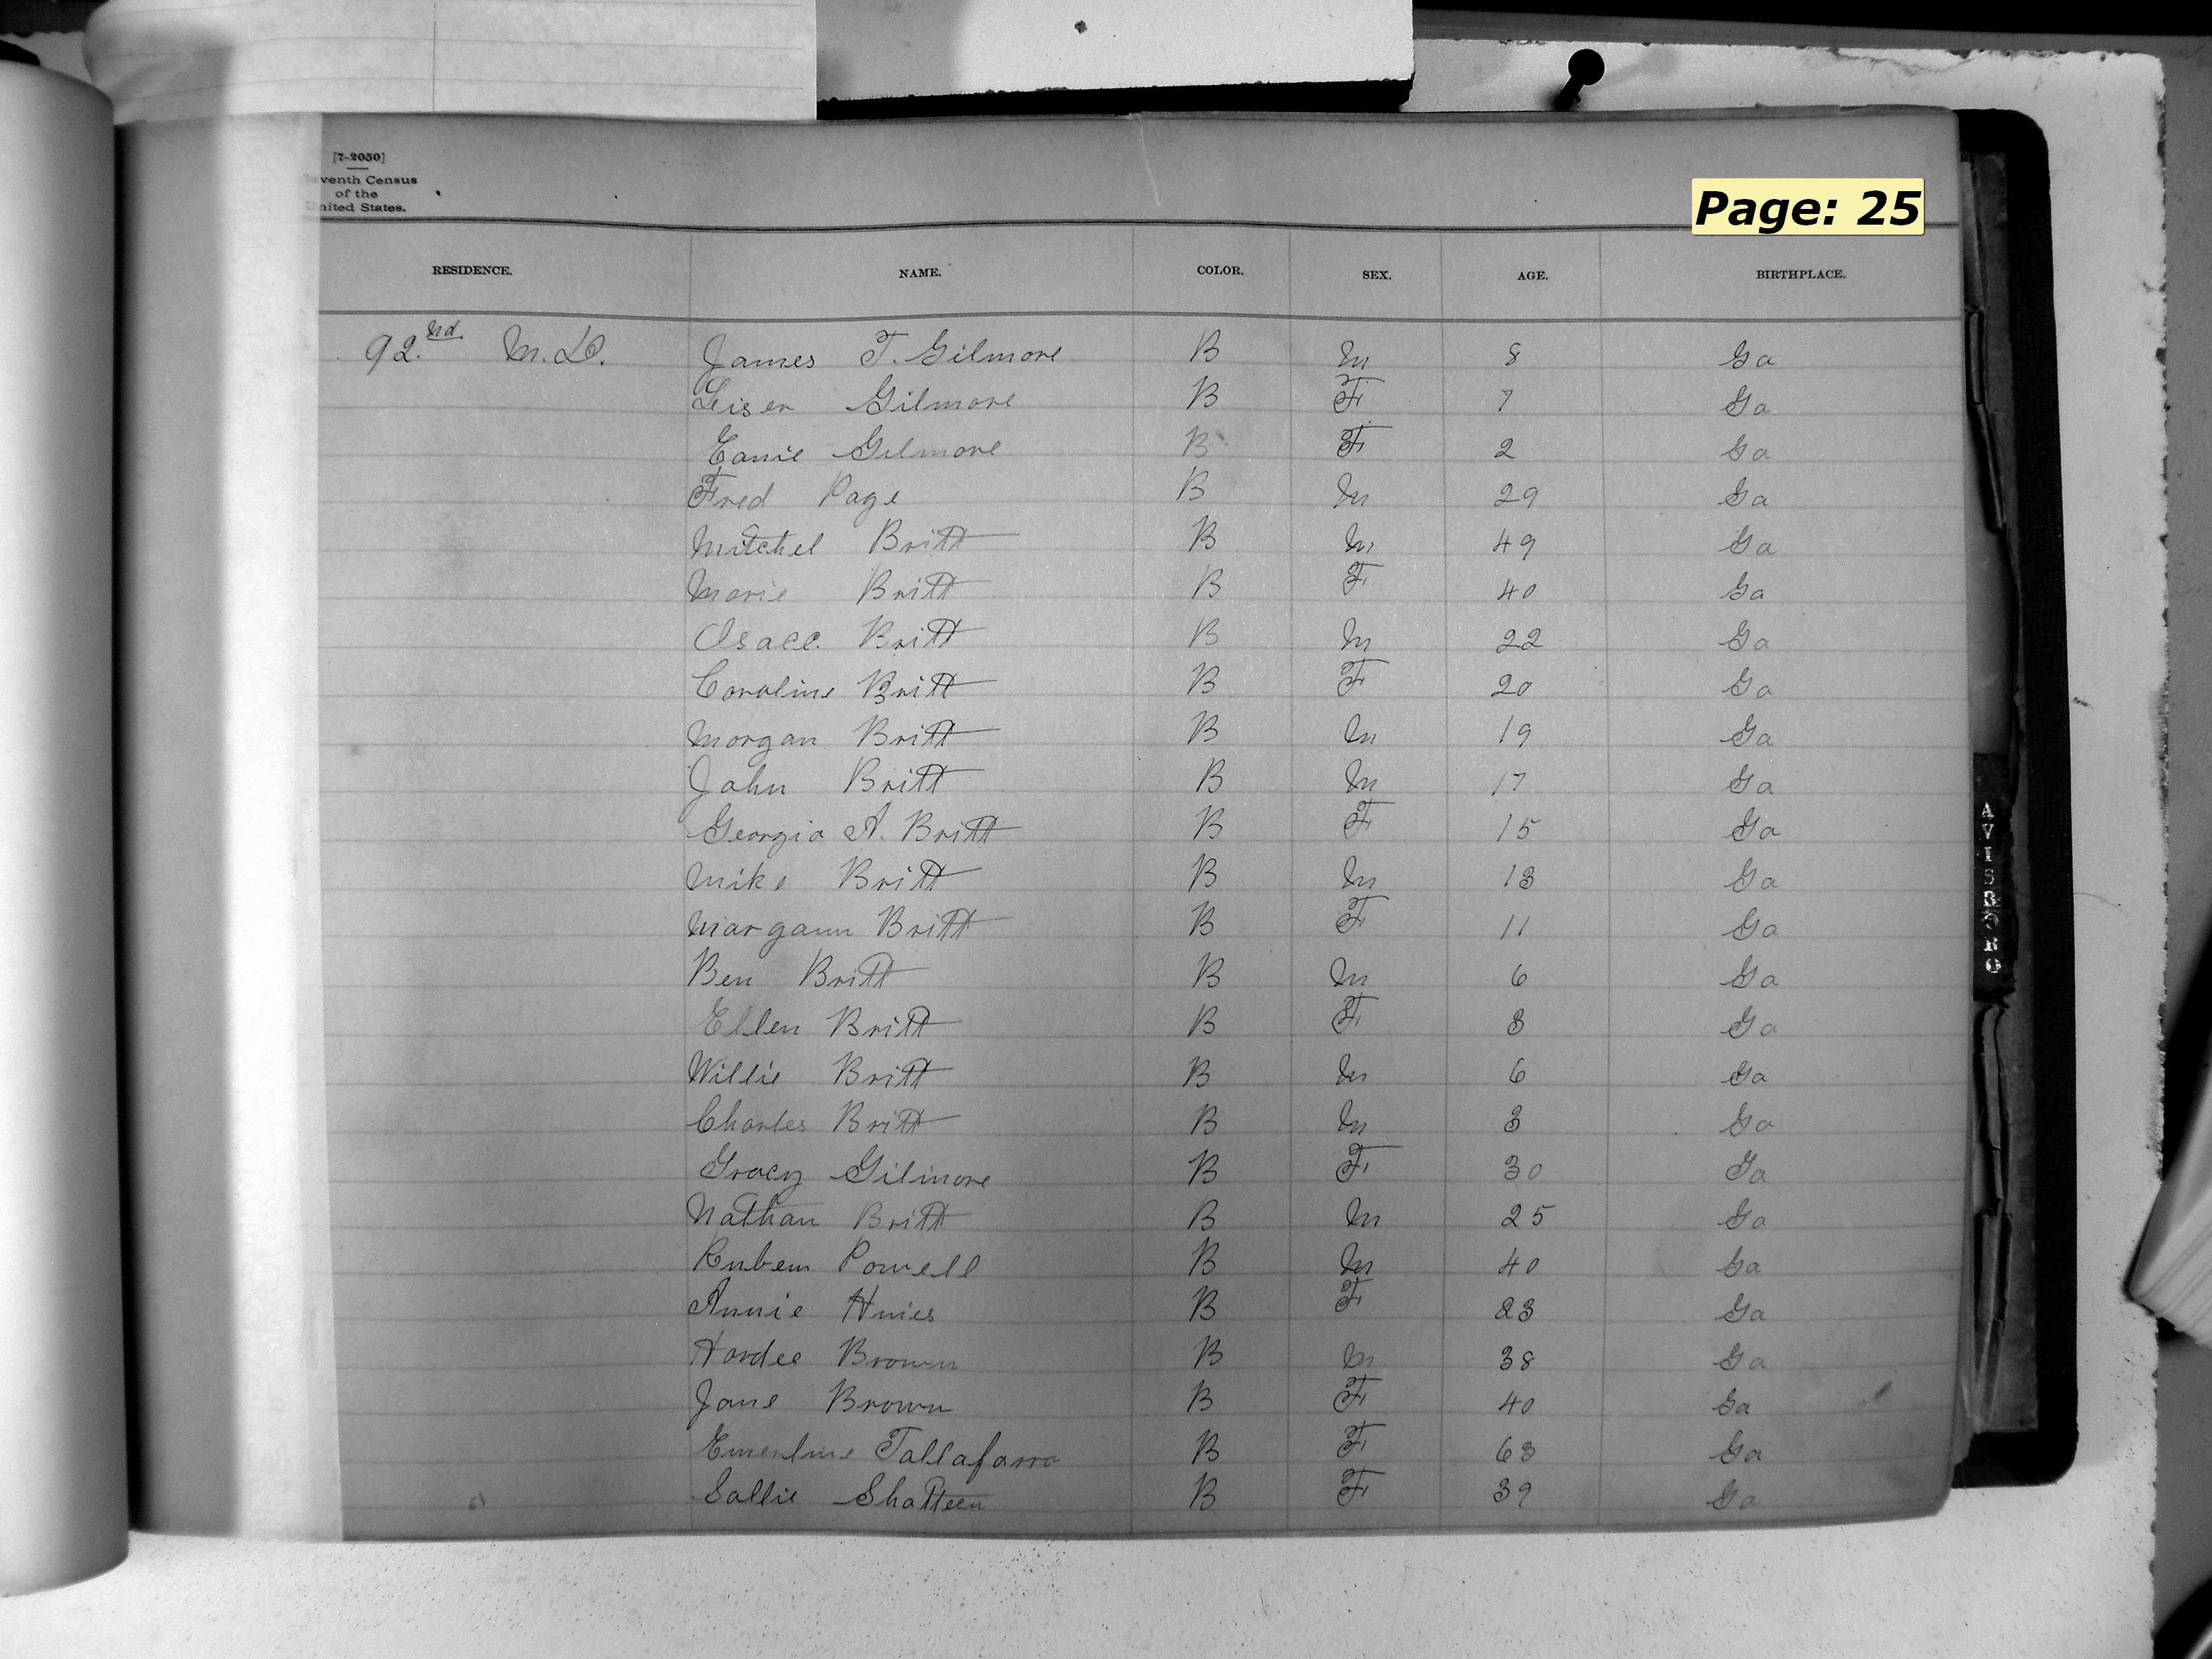 [7-2050]
venth Census
of the
United States.
Page: 25
RESIDENCE. NAME. COLOR. SEX. AGE. BIRTHPLACE.
92.nd M.D. James T. Gilmore B M 8 Ga
Liser Gilmore B F 7 Ga
Eanie Gilmore B F 2 Ga
Fred Page B M 29 Ga
Mitchel Britt B M 49 Ga
Marie Britt B F 40 Ga
Isacc Britt B M 22 Ga
Caroline Britt B F 20 Ga
Morgan Britt B M 19 Ga
John Britt B M 17 Ga
Georgia A. Britt B F 15 Ga
Mike Britt B M 13 Ga
Margann Britt B F 11 Ga
Ben Britt B M 6 Ga
Ellen Britt B F 8 Ga
Willie Britt B M 6 Ga
Charles Britt B M 3 Ga
Gracy Gilmore B F 30 Ga
Nathan Britt B M 25 Ga
Rubem Powell B M 40 Ga
Annie Hnies B F 23 Ga
Hardee Brown B M 38 Ga
Jane Brown B F 40 Ga
Emerline Tallafarro B F 63 Ga
Sallie Shatteen B F 39 Ga